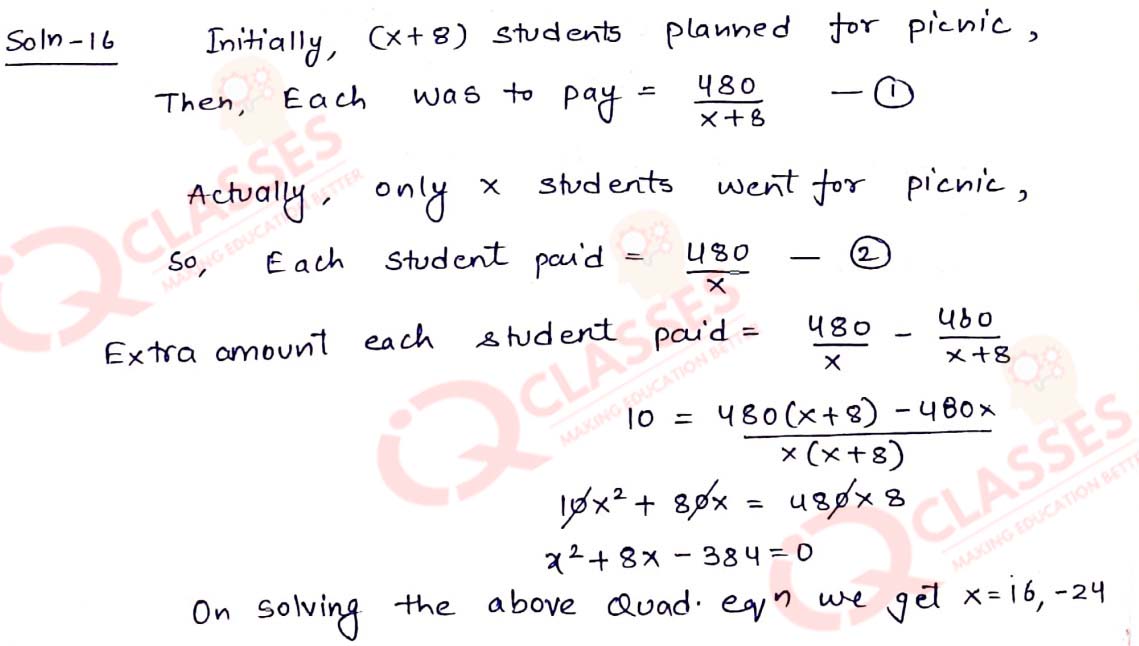 Soln-16 Initially, (x+8) students planned for picnic,
Then, Each was to pay = 480/(x+8) — ①
Actually, only x students went for picnic,
So, Each student paid = 480/x — ②
Extra amount each student paid = 480/x - 480/(x+8)
10 = (480(x+8) - 480x)/(x(x+8))
10x² + 80x = 480×8
x² + 8x - 384 = 0
On solving the above Quad. eqn we get x=16, -24
QCLASSES
MAKING EDUCATION BETTER
QCLASSES
MAKING EDUCATION BETTER
QCLASSES
MAKING EDUCATION BETTE